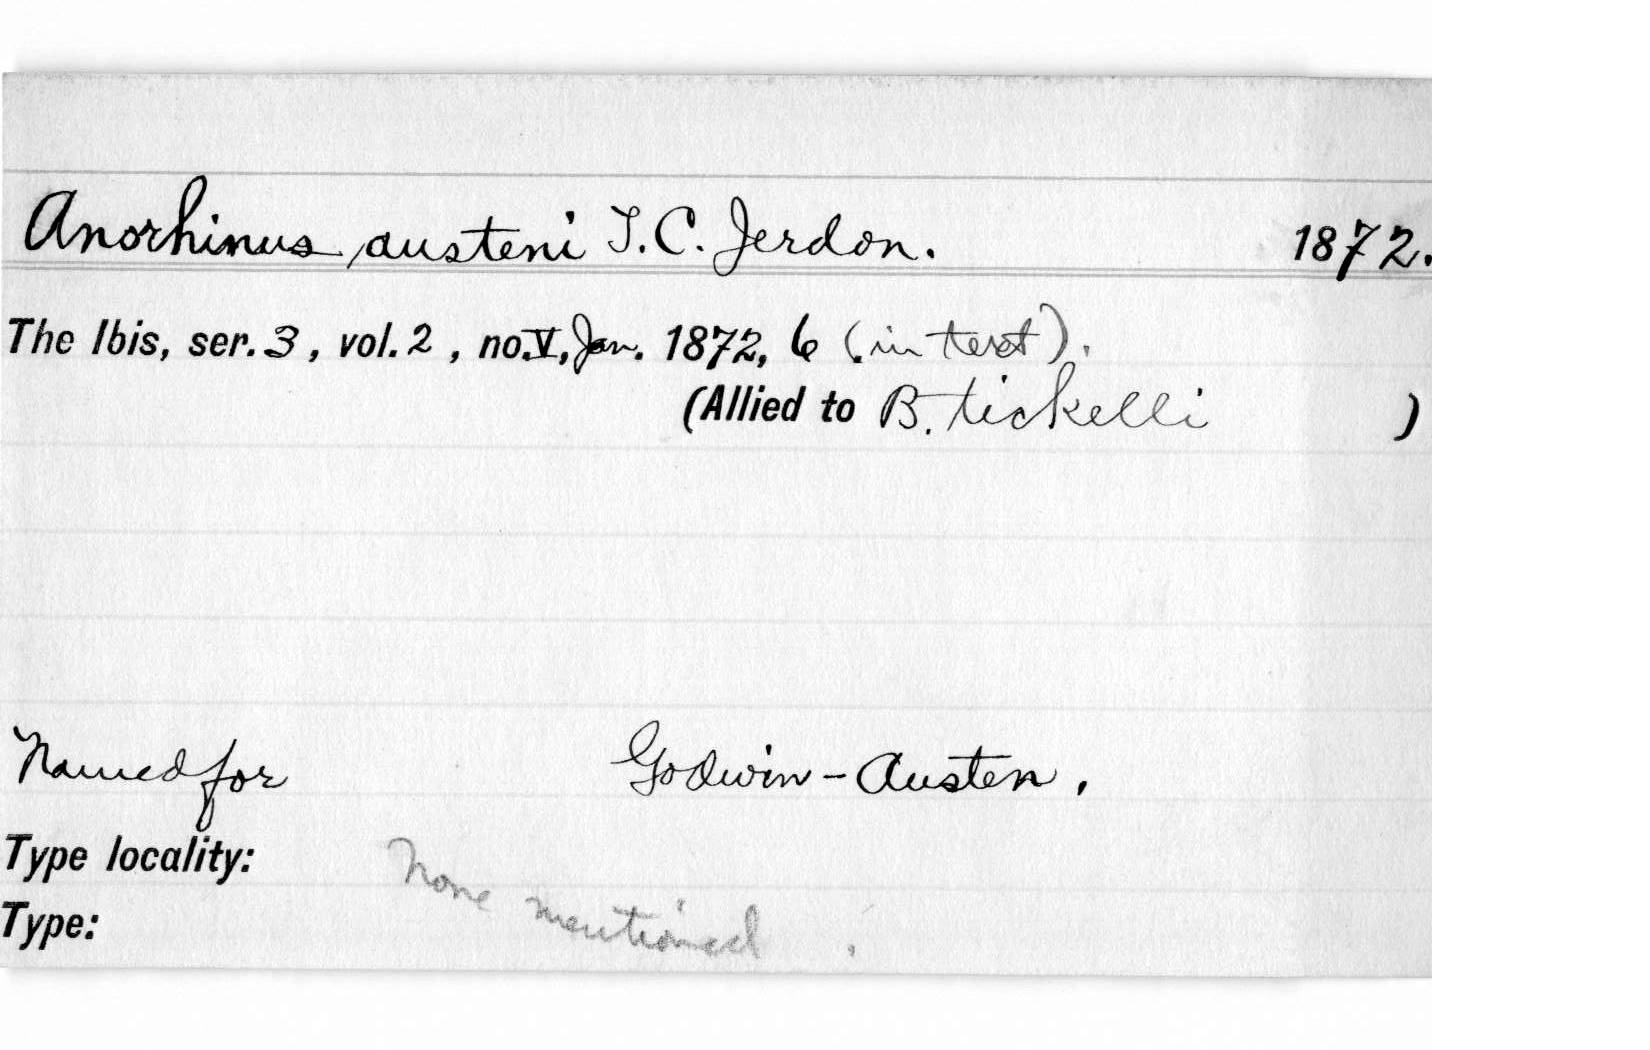 Anorhinus austeni T.C. Jerdon. 1872.
The Ibis, ser. 3, vol. 2, no. V, Jan. 1872, 6 (in text).
(Allied to B. tickelli )
Named for Godwin-Austen.
Type locality: None mentioned.
Type: